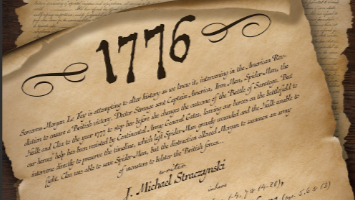 1776
Sorceress Morgan Le Fay is attempting to alter history as we know it, intervening in the American Rev-
olution to ensure a British victory. Doctor Strange sent Captain America, Iron Man, Spider-Man, the
Hulk and Clea to the year 1777 to stop her before she changes the outcome of the Battle of Saratoga. But
our heroes' help has been resisted by Continental Army General Gates, leaving our heroes on the battlefield to
intervene directly to preserve the timeline, which left Spider-Man gravely wounded and the Hulk unable to
fight. Clea was able to save Spider-Man, but the distraction allowed Morgan to summon an army
of monsters to bolster the British forces...
J. Michael Straczynski